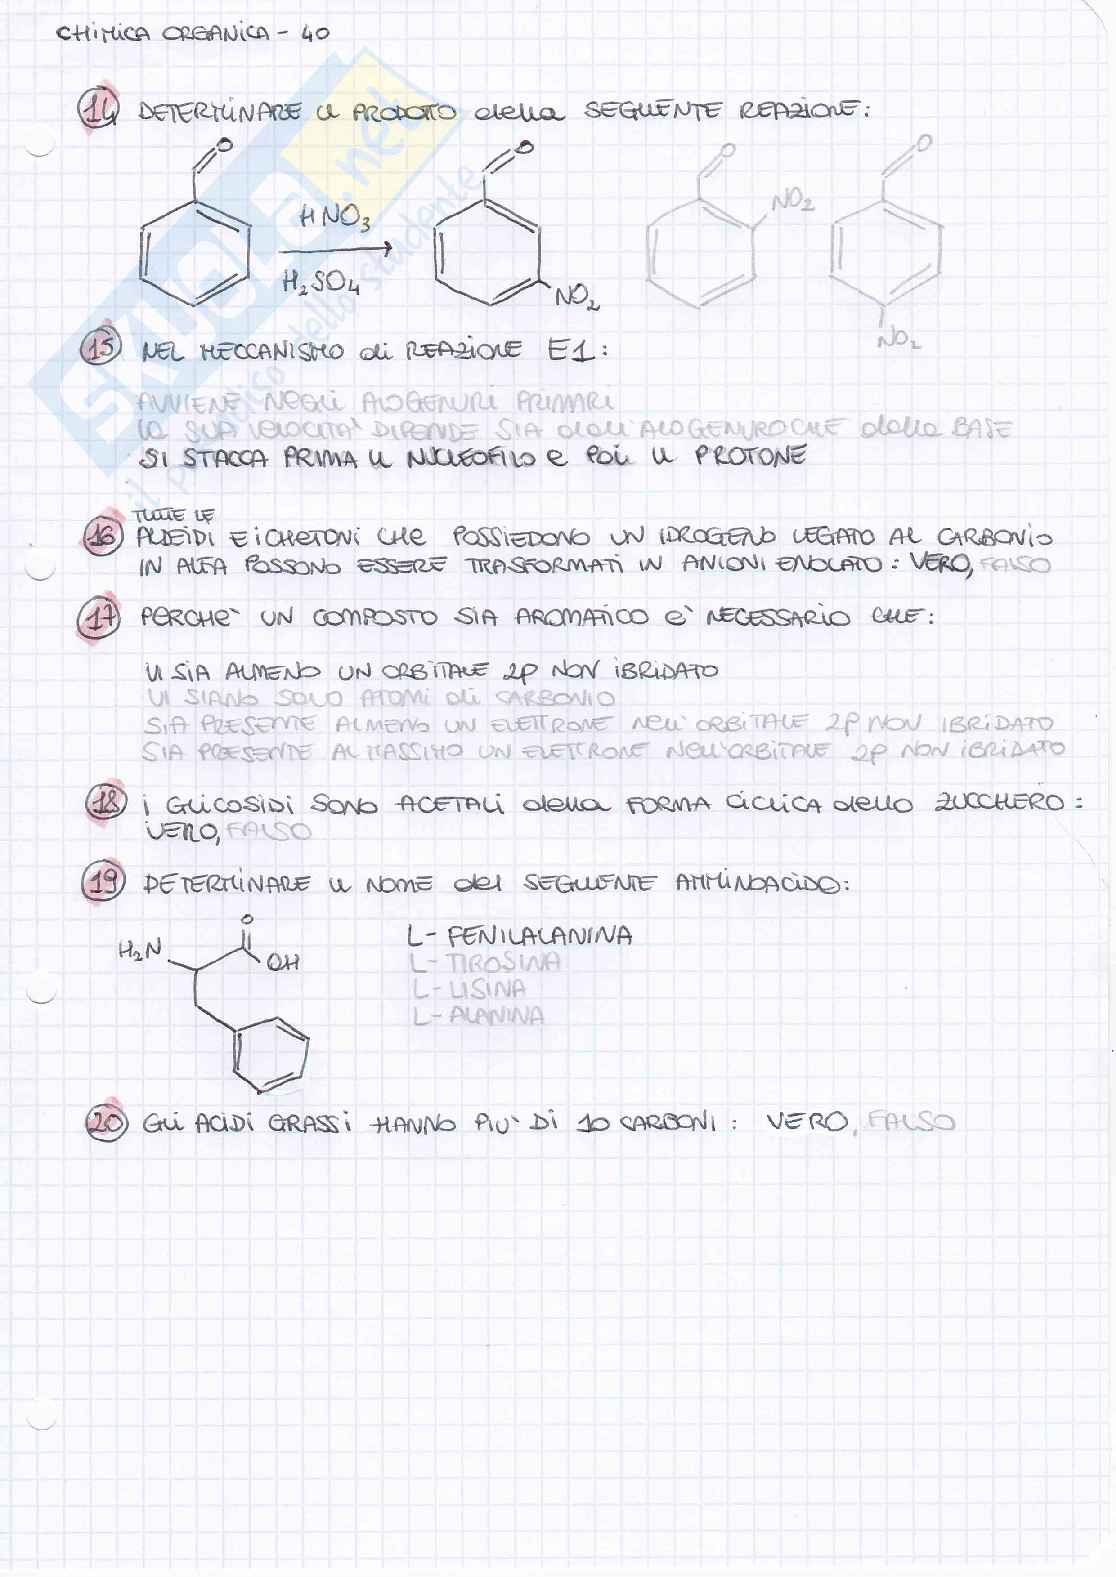 CHIMICA ORGANICA - 40
14 DETERMINARE IL PRODOTTO della SEGUENTE REAZIONE:
O
O
O
O
HNO3
H2SO4
NO2
NO2
NO2
15 NEL MECCANISMO di REAZIONE E1:
AVVIENE NEGLI ALOGENURI PRIMARI
LA SUA VELOCITA' DIPENDE SIA dall'ALOGENURO CHE dalla BASE
SI STACCA PRIMA IL NUCLEOFILO E POI IL PROTONE
TUTTE LE
16 ALDEIDI E i CHETONI CHE POSSIEDONO UN IDROGENO LEGATO AL CARBONIO
IN ALFA POSSONO ESSERE TRASFORMATI IN ANIONI ENOLATO: VERO, FALSO
17 PERCHE' UN COMPOSTO SIA AROMATICO E' NECESSARIO CHE:
VI SIA ALMENO UN ORBITALE 2p NON IBRIDATO
VI SIANO SOLO ATOMI di CARBONIO
SIA PRESENTE ALMENO UN ELETTRONE NELL'ORBITALE 2p NON IBRIDATO
SIA PRESENTE AL MASSIMO UN ELETTRONE NELL'ORBITALE 2p NON IBRIDATO
18 i GLICOSIDI SONO ACETALI della FORMA CICLICA dello ZUCCHERO:
VERO, FALSO
19 DETERMINARE IL NOME del SEGUENTE AMMINOACIDO:
O
H2N
OH
L- FENILALANINA
L- TIROSINA
L- LISINA
L- ALANINA
20 Gli ACIDI GRASSI HANNO PIU' DI 10 CARBONI: VERO, FALSO
SKUOLA.net
il paradiso dello studente